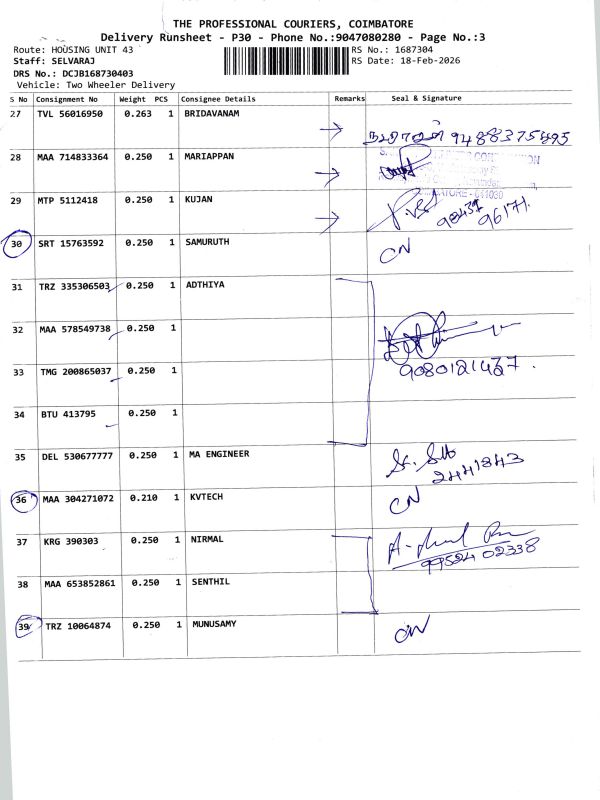 THE PROFESSIONAL COURIERS, COIMBATORE
Delivery Runsheet - P30 - Phone No.:9047080280 - Page No.:3
Route: HOUSING UNIT 43 RS No.: 1687304
Staff: SELVARAJ RS Date: 18-Feb-2026
DRS No.: DCJB168730403
Vehicle: Two Wheeler Delivery
S No Consignment No Weight PCS Consignee Details Remarks Seal & Signature
27 TVL 56016950 0.263 1 BRIDAVANAM 9488375895
28 MAA 714833364 0.250 1 MARIAPPAN
29 MTP 5112418 0.250 1 KUJAN 98437 96171
30 SRT 15763592 0.250 1 SAMURUTH CN
31 TRZ 335306503 0.250 1 ADTHIYA
32 MAA 578549738 0.250 1
33 TMG 200865037 0.250 1 9080121437
34 BTU 413795 0.250 1
35 DEL 530677777 0.250 1 MA ENGINEER 2441843
36 MAA 304271072 0.210 1 KVTECH CN
37 KRG 390303 0.250 1 NIRMAL 99524 02338
38 MAA 653852861 0.250 1 SENTHIL
39 TRZ 10064874 0.250 1 MUNUSAMY CN